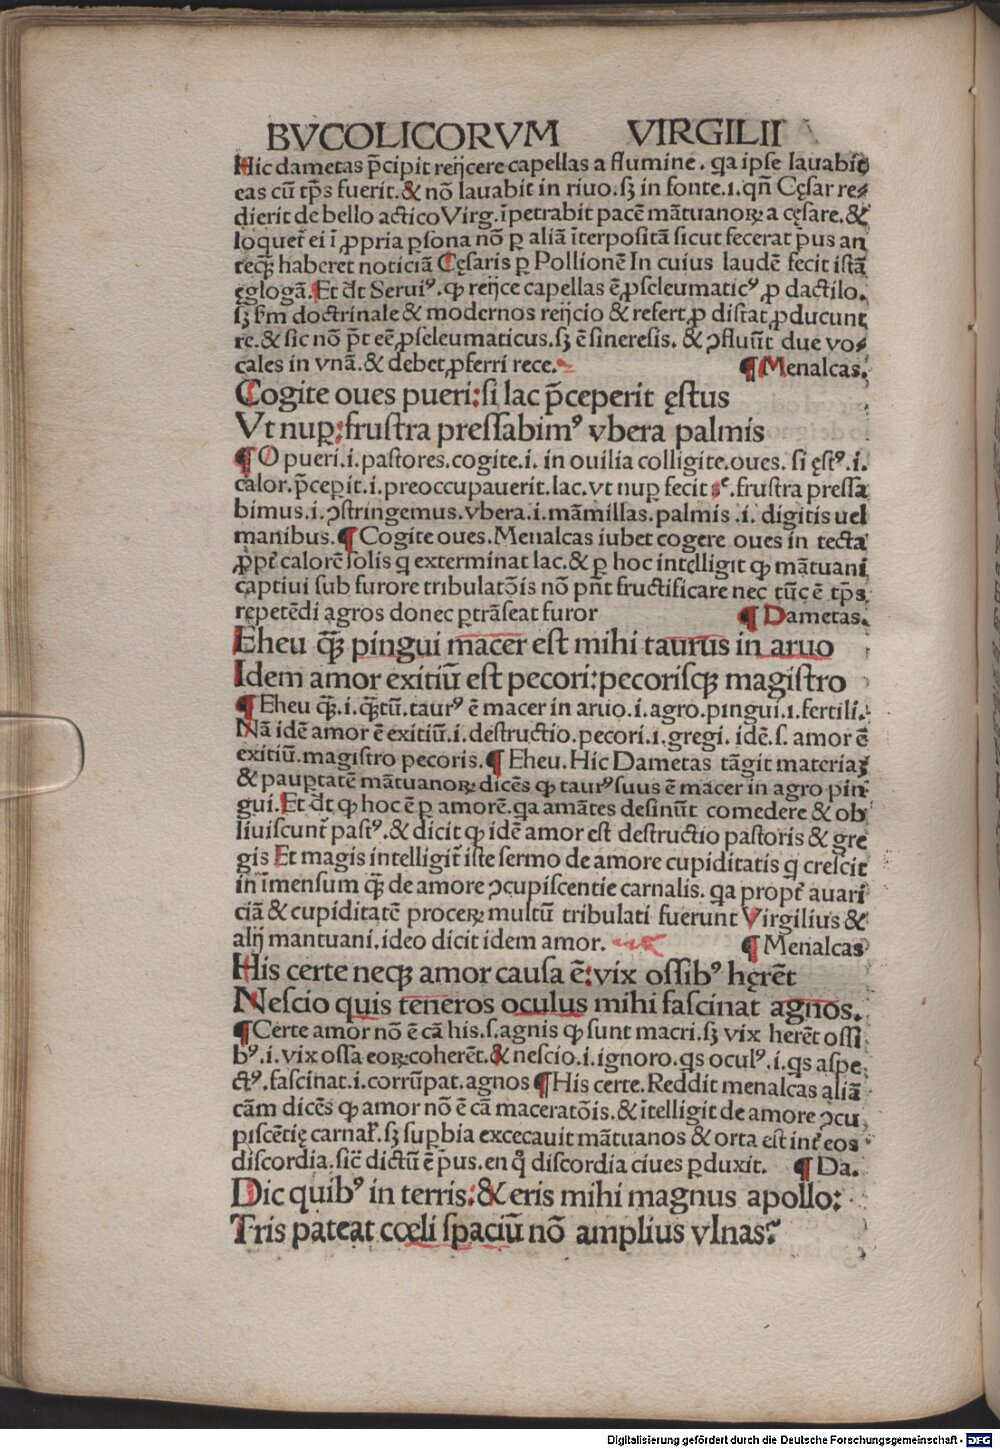 BVCOLICORVM VIRGILII
Hic dametas p̄cipit reijcere capellas a flumine. qa ipse lauabit
eas cū tp̄s fuerit. & nō lauabit in riuo. sꝫ in fonte. i. qn̄ Cęsar re⸗
dierit de bello actico Virg. īpetrabit pacē mātuanoꝝ a cęsare. &
loquet̄ ei ī ꝓpria ꝑsona nō ꝑ aliā īterpositā sicut fecerat p̄us an
teqꝫ̄ haberet noticiā Cęsaris ꝑ Pollionē In cuius laudē fecit istā
ęglogā. Et dt̄ Seruiꝰ. ꝙ reijce capellas ē ꝓseleumaticꝰ, ꝓ dactilo.
sꝫ ẜm doctrinale & modernos reijcio & refert, ꝓ distat, ꝓducunt
re. & sic nō p̄t eē ꝓseleumaticus. sꝫ ē sineresis. & ↄfluūt due vo⸗
cales in vnā. & debet ꝓferri rece. ¶ Menalcas.
Cogite oues pueri: si lac p̄ceperit ęstus
Vt nuꝑ: frustra pressabimꝰ vbera palmis
¶ O pueri. i. pastores. cogite. i. in ouilia colligite. oues. si ęstꝰ. i.
calor. p̄cepit. i. preoccupauerit. lac. vt nuꝑ fecit sc. frustra pressa
bimus. i. ↄstringemus. vbera. i. māmillas. palmis .i. digitis uel
manibus. ¶ Cogite oues. Menalcas iubet cogere oues in tecta
ꝓpt̄ calorē solis q exterminat lac. & ꝑ hoc intelligit ꝙ mātuani
captiui sub furore tribulatōis nō pn̄t fructificare nec tūc ē tp̄s
repetēdi agros donec ꝑtrāseat furor ¶ Dametas.
Eheu qꝫ̄ pingui macer est mihi taurus in aruo
Idem amor exitiū est pecori: pecorisqꝫ magistro
¶ Eheu qꝫ̄. i. qꝫ̄tū. taurꝰ ē macer in aruo. i. agro. pingui. i. fertili.
Nā idē amor ē exitiū. i. destructio. pecori. i. gregi. idē. s. amor ē
exitiū. magistro pecoris. ¶ Eheu. Hic Dametas tāgit materiaꝫ
& pauꝑtatē mātuanoꝝ dicēs ꝙ taurꝰ suus ē macer in agro pin
gui. Et dt̄ ꝙ hoc ē ꝑ amorē. qa amātes desinūt comedere & ob
liuiscunt̄ pastꝰ. & dicit ꝙ idē amor est destructio pastoris & gre
gis Et magis intelligit̄ iste sermo de amore cupiditatis q crescit
in īmensum qꝫ̄ de amore ↄcupiscentie carnalis. qa propt̄ auari
ciā & cupiditatē proceꝝ multū tribulati fuerunt Virgilius &
alij mantuani. ideo dicit idem amor. ¶ Menalcas
His certe neqꝫ amor causa ē: vix ossibꝰ hęrēt
Nescio quis teneros oculus mihi fascinat agnos.
¶ Certe amor nō ē cā his. s. agnis ꝙ sunt macri. sꝫ vix herēt ossi
bꝰ. i. vix ossa eoꝝ coherēt. & nescio. i. ignoro. qs oculꝰ. i. qs aspe
ctꝰ. fascinat. i. corrūpat. agnos ¶ His certe. Reddit menalcas aliā
cām dicēs ꝙ amor nō ē cā maceratōis. & ītelligit de amore ↄcu
piscētię carnaꝉ. sꝫ suꝑbia excecauit mātuanos & orta est int̄ eos
discordia. sic̄ dictū ē p̄us. en q̊ discordia ciues ꝑduxit. ¶ Da.
Dic quibꝰ in terris: & eris mihi magnus apollo:
Tris pateat cœli spaciū nō amplius vlnas?
Digitalisierung gefördert durch die Deutsche Forschungsgemeinschaft - DFG